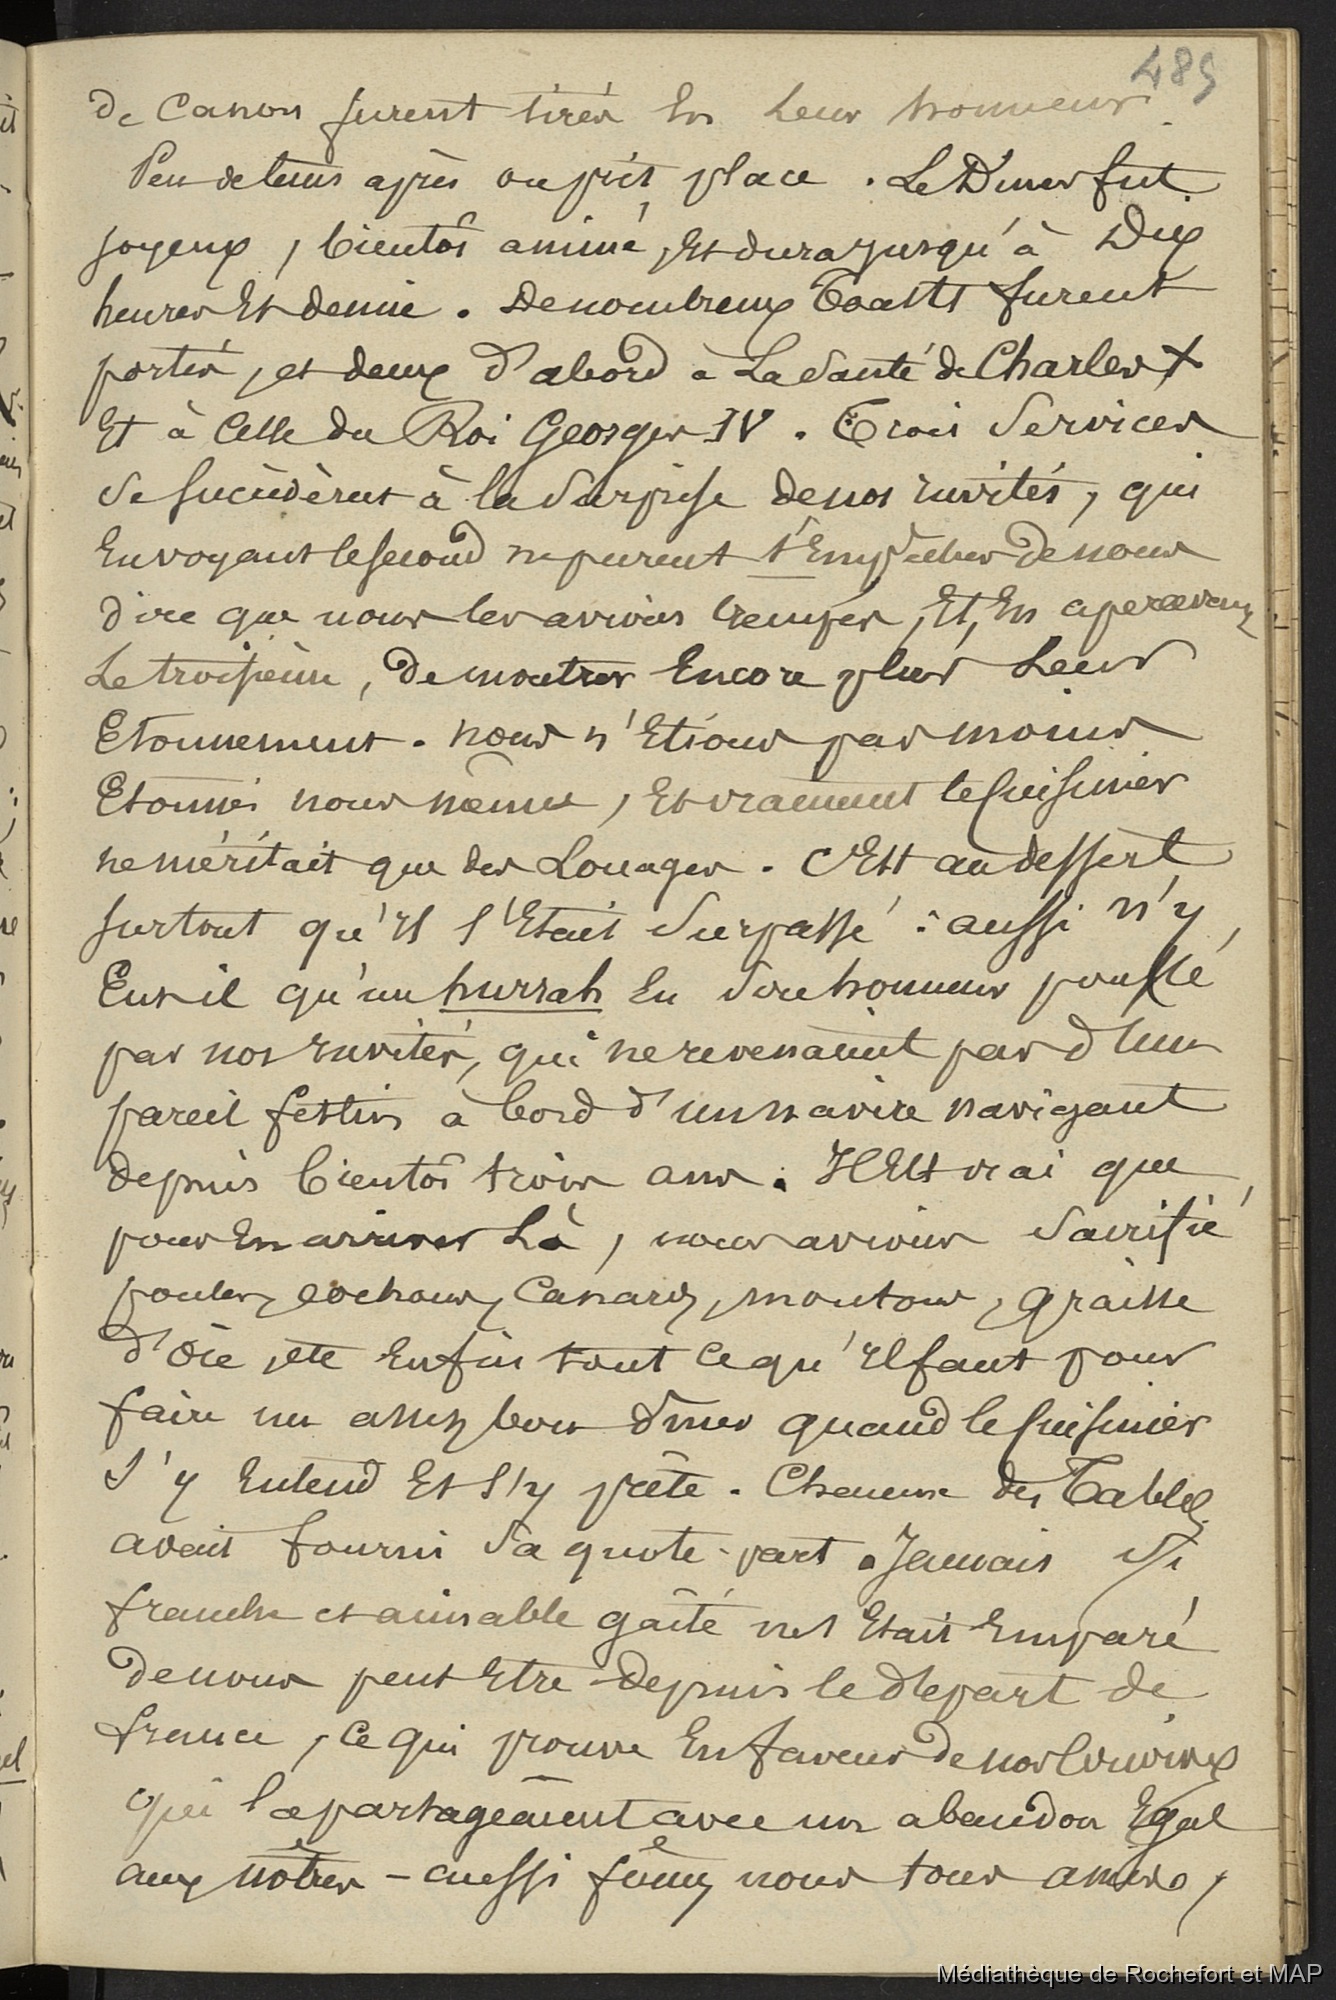 489
de Canon furent tirés En Leur honneur.
Peu de tems après on prit place. Le Dîner fut
joyeux, bientôt animé, Et dura jusqu'à Dix
heures Et demie. De nombreux Toasts furent
portés, et deux d'abord à La Santé de Charles X
Et à Celle du Roi Georges IV. Trois Services
Se succédèrent à la Surprise de nos invités, qui
En voyant le second ne purent s'Empêcher de nous
dire que nous les avions trompés, Et, En apercevant
Le troisième, de montrer Encore plus Leur
Etonnement. nous n'Etions pas moins
Etonnés nous mêmes, Et vraiment le Cuisinier
ne méritait que des Louages. C'Est au dessert
surtout qu'il s'Etait Surpassé : aussi n'y
Eut-il qu'un hurrah En Son honneur poussé
par nos invités, qui ne revenaient pas d'un
pareil festin à bord d'un navire navigant
depuis bientôt trois ans. Il Est vrai que
pour En arriver Là, nous avions Sacrifié
poules, cochons, Canards, moutons, graisse
d'oie, etc Enfin tout Ce qu'il faut pour
faire un assez bon dîner quand le Cuisinier
S'y Entend Et s'y prête. Chacune des Tables
avait fourni Sa quote-part. Jamais Si
franche et aimable gaîté ne s'Etait Emparé
de nous peut Etre depuis le départ de
france, Ce qui prouve En faveur de nos Convives
qui la partageaient avec un abandon Egal
aux nôtres - aussi fûmes nous tous amis,
Médiathèque de Rochefort et MAP